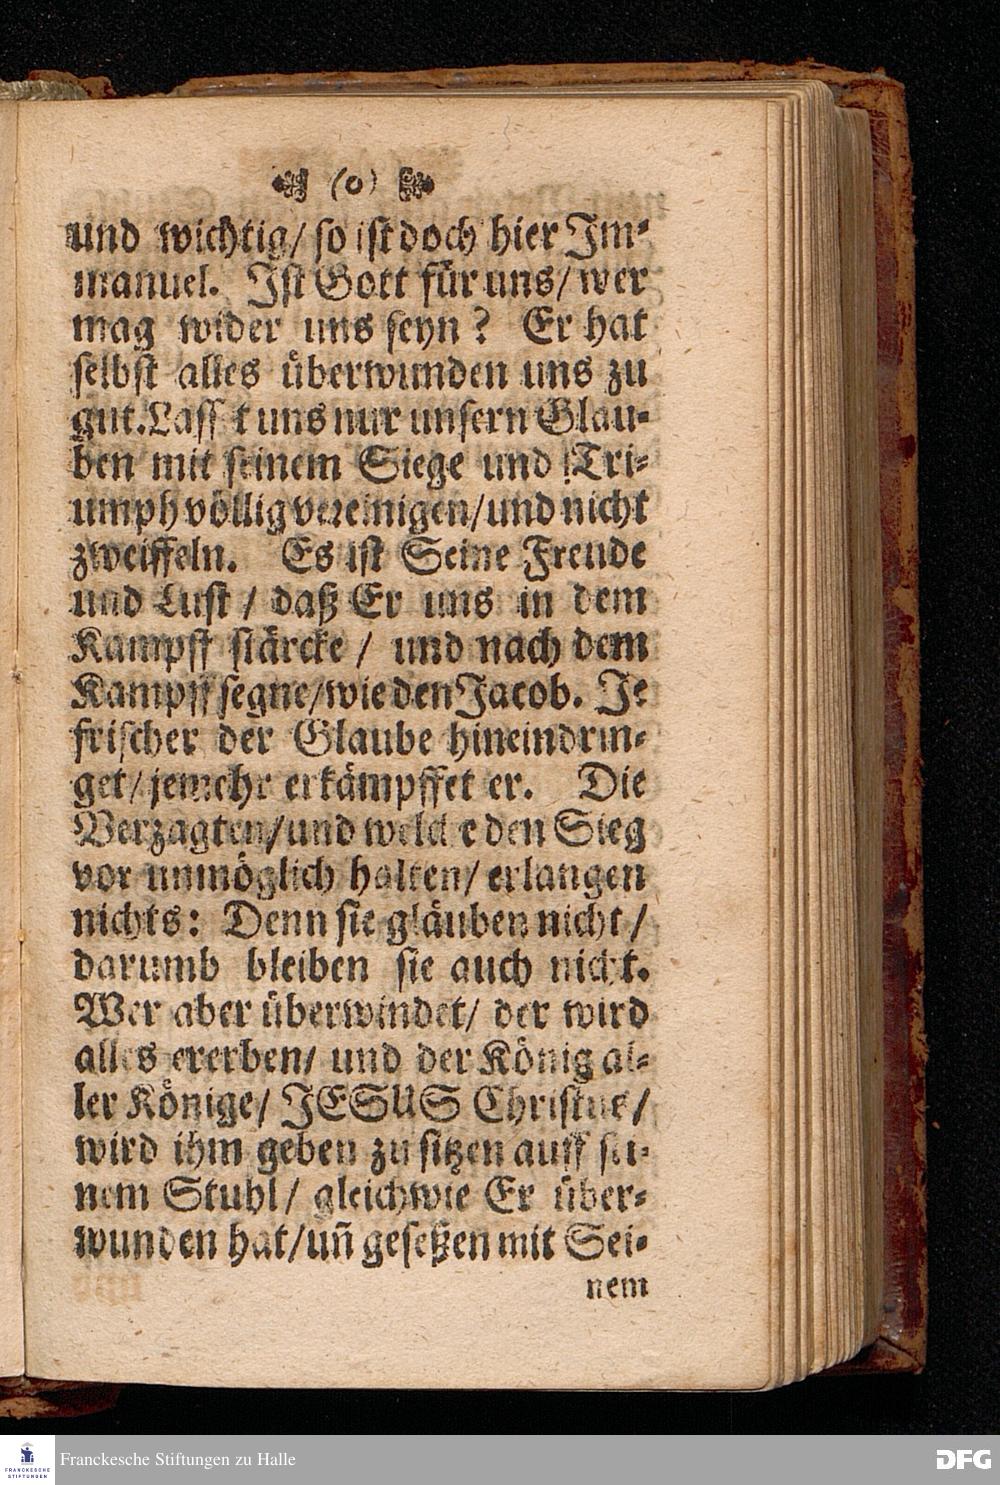 (o)
und wichtig/ so ist doch hier Im-
manuel. Ist Gott für uns/ wer
mag wider uns seyn? Er hat
selbst alles überwunden uns zu
gut. Lasst uns nur unsern Glau-
ben mit seinem Siege und Tri-
umph völlig vereinigen/ und nicht
zweiffeln. Es ist Seine Freude
und Lust/ daß Er uns in dem
Kampff stärcke/ und nach dem
Kampff segne/ wie den Jacob. Je
frischer der Glaube hineindrin-
get/ jemehr erkämpffet er. Die
Verzagten/ und welche den Sieg
vor unmöglich halten/ erlangen
nichts: Denn sie gläuben nicht/
darumb bleiben sie auch nicht.
Wer aber überwindet/ der wird
alles ererben/ und der König al-
ler Könige/ JESUS Christus/
wird ihm geben zu sitzen auff sei-
nem Stuhl/ gleichwie Er über-
wunden hat/ uñ gesessen mit Sei-
nem
FRANCKESCHE
STIFTUNGEN
Franckesche Stiftungen zu Halle
DFG